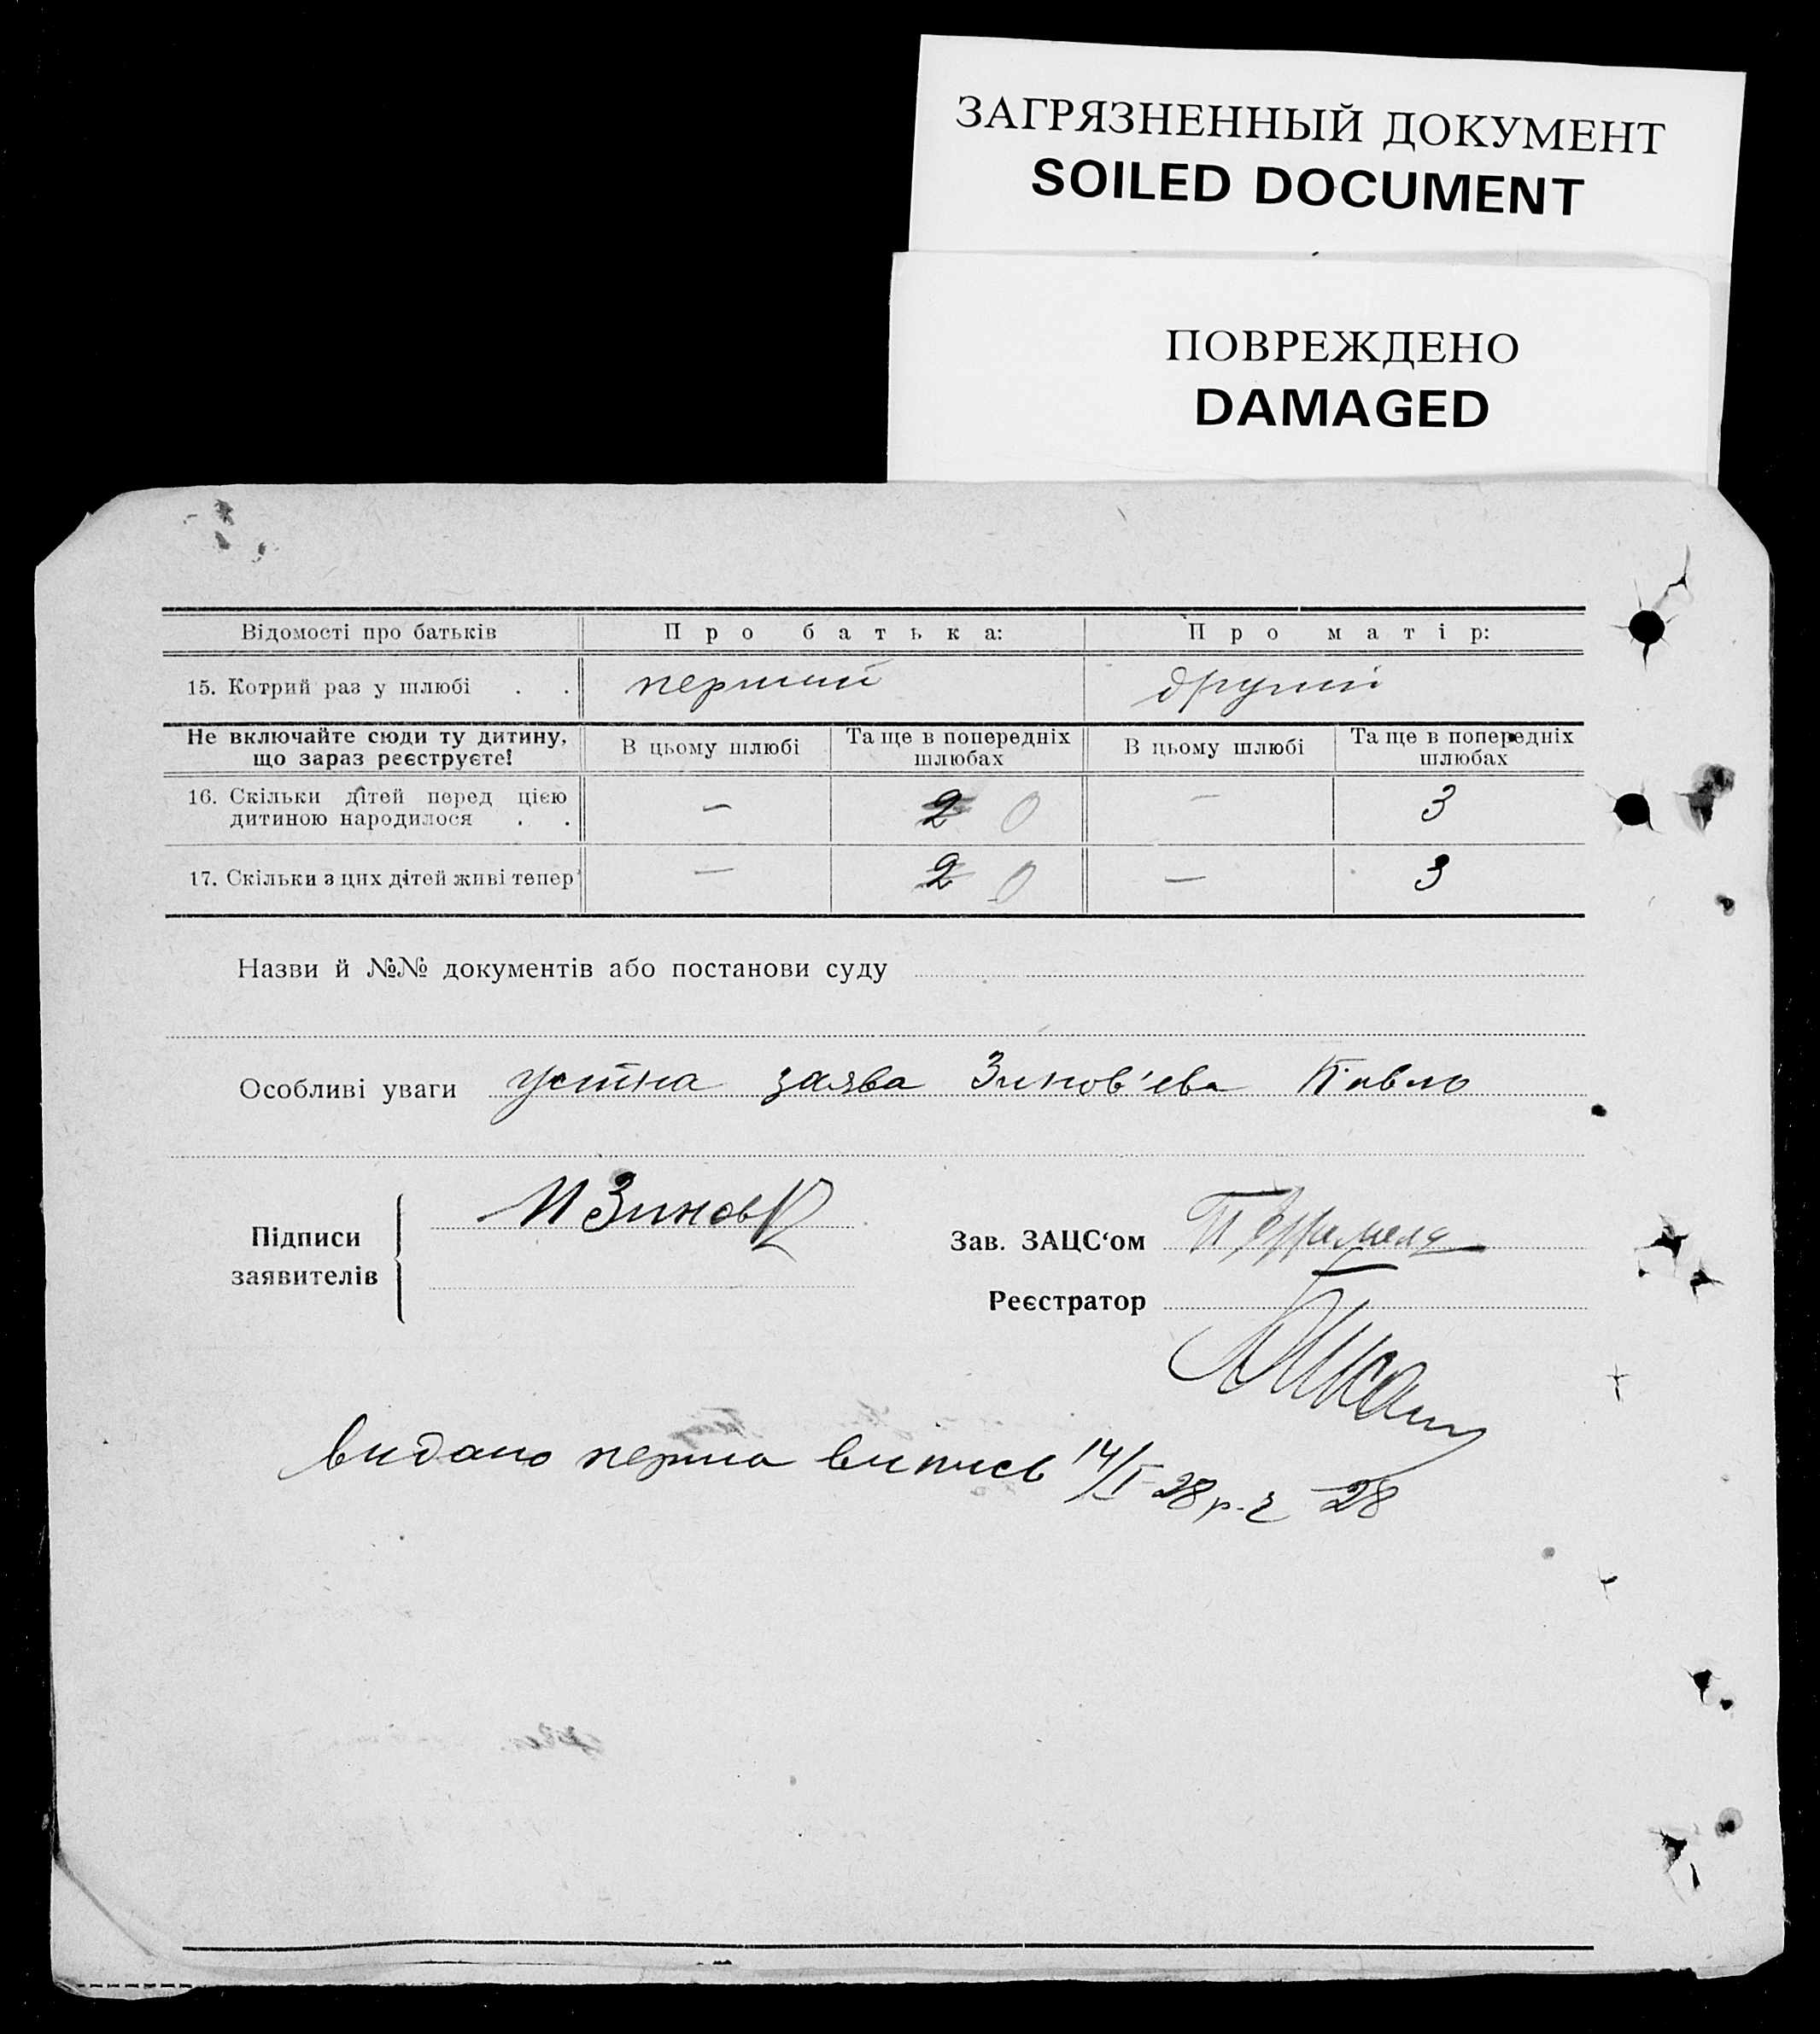 ЗАГРЯЗНЕННЫЙ ДОКУМЕНТ
SOILED DOCUMENT
ПОВРЕЖДЕНО
DAMAGED
Відомості про батьків Про батька: Про матір:
15. Котрий раз у шлюбі . . перший другий
Не включайте сюди ту дитину, що зараз реєструєте! В цьому шлюбі Та ще в попередніх шлюбах В цьому шлюбі Та ще в попередніх шлюбах
16. Скільки дітей перед цією дитиною народилося . . — 2 0 — 3
17. Скільки з цих дітей живі тепер — 2 0 — 3
Назви й №№ документів або постанови суду
Особливі уваги устна заява Зинов'ева Павло
Підписи заявителів
Зав. ЗАЦС‘ом
Реєстратор
видано перша випись 14/I-28 р. 28